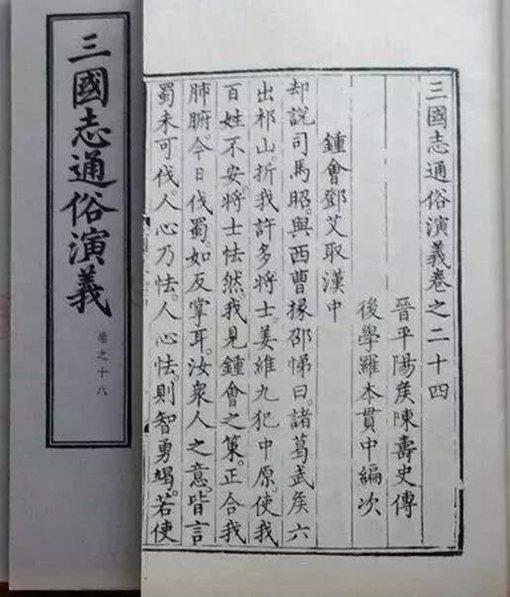 三國志通俗演義
卷之十八
三國志通俗演義卷之二十四
晉平陽矦陳壽史傳
後學羅本貫中編次
鍾會鄧艾取漢中
却說司馬昭與西曹掾邵悌曰諸葛武矦六
出祁山折我許多將士姜維九犯中原使我
百姓不安將士怯然我見鍾會之策正合我
肺腑今日伐蜀如反掌耳汝衆人之意皆言
蜀未可伐人心乃怯人心怯則智勇竭若使